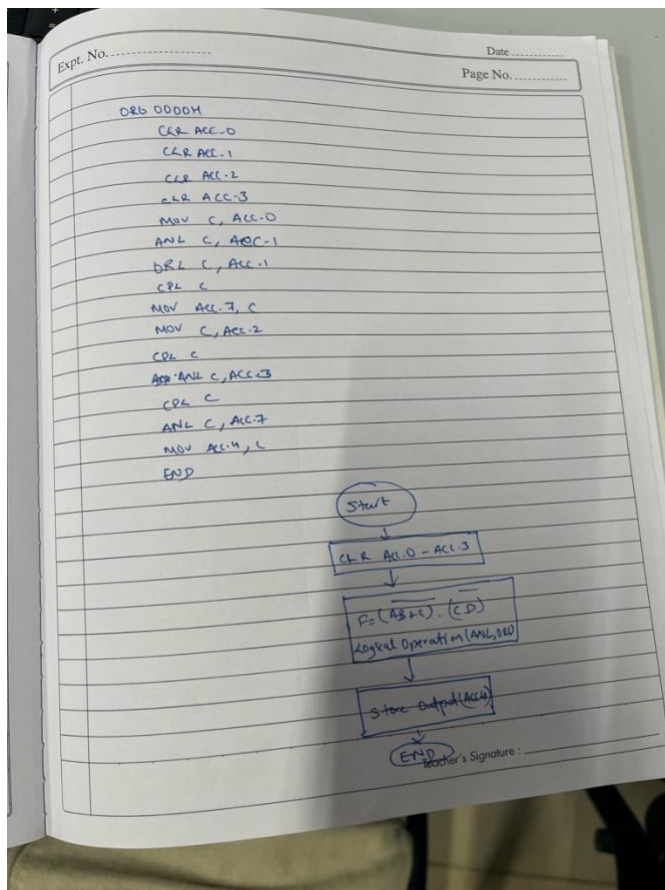 Expt. No.
Date
Page No.
ORG 0000H
CLR ACC.0
CLR ACC.1
CLR ACC.2
CLR ACC.3
MOV C, ACC.0
ANL C, ACC.1
ORL C, ACC.1
CPL C
MOV ACC.7, C
MOV C, ACC.2
CPL C
ANL C, ACC.3
CPL C
ANL C, ACC.7
MOV ACC.4, C
END
Start
CLR ACC.0 - ACC.3
F=(\overline{AB+C}).(\overline{CD})
Logical Operation (ANL, ORL)
Store Output (ACC4)
END
Teacher's Signature :